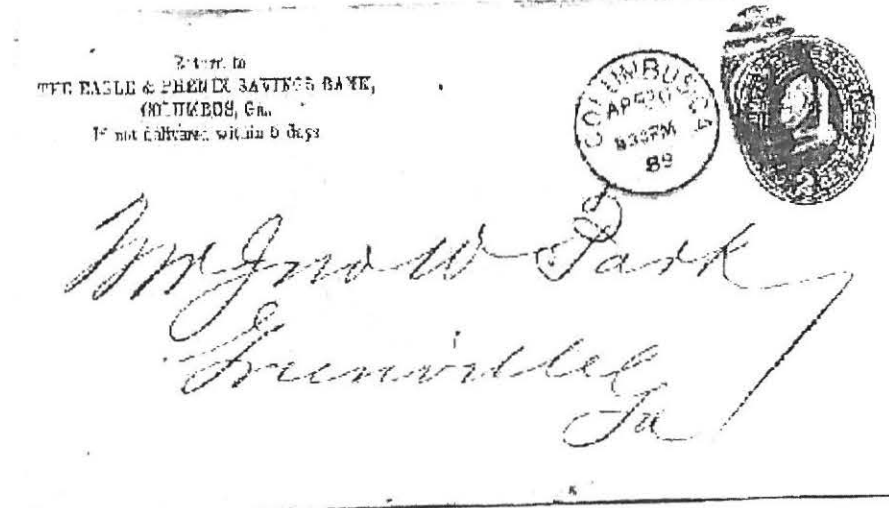 Return to
THE EAGLE & PHENIX SAVINGS BANK,
COLUMBUS, Ga.
If not delivered within 5 days
COLUMBUS GA
APR 20
PM
89
Mr Jno W Park
Greenville
Ga